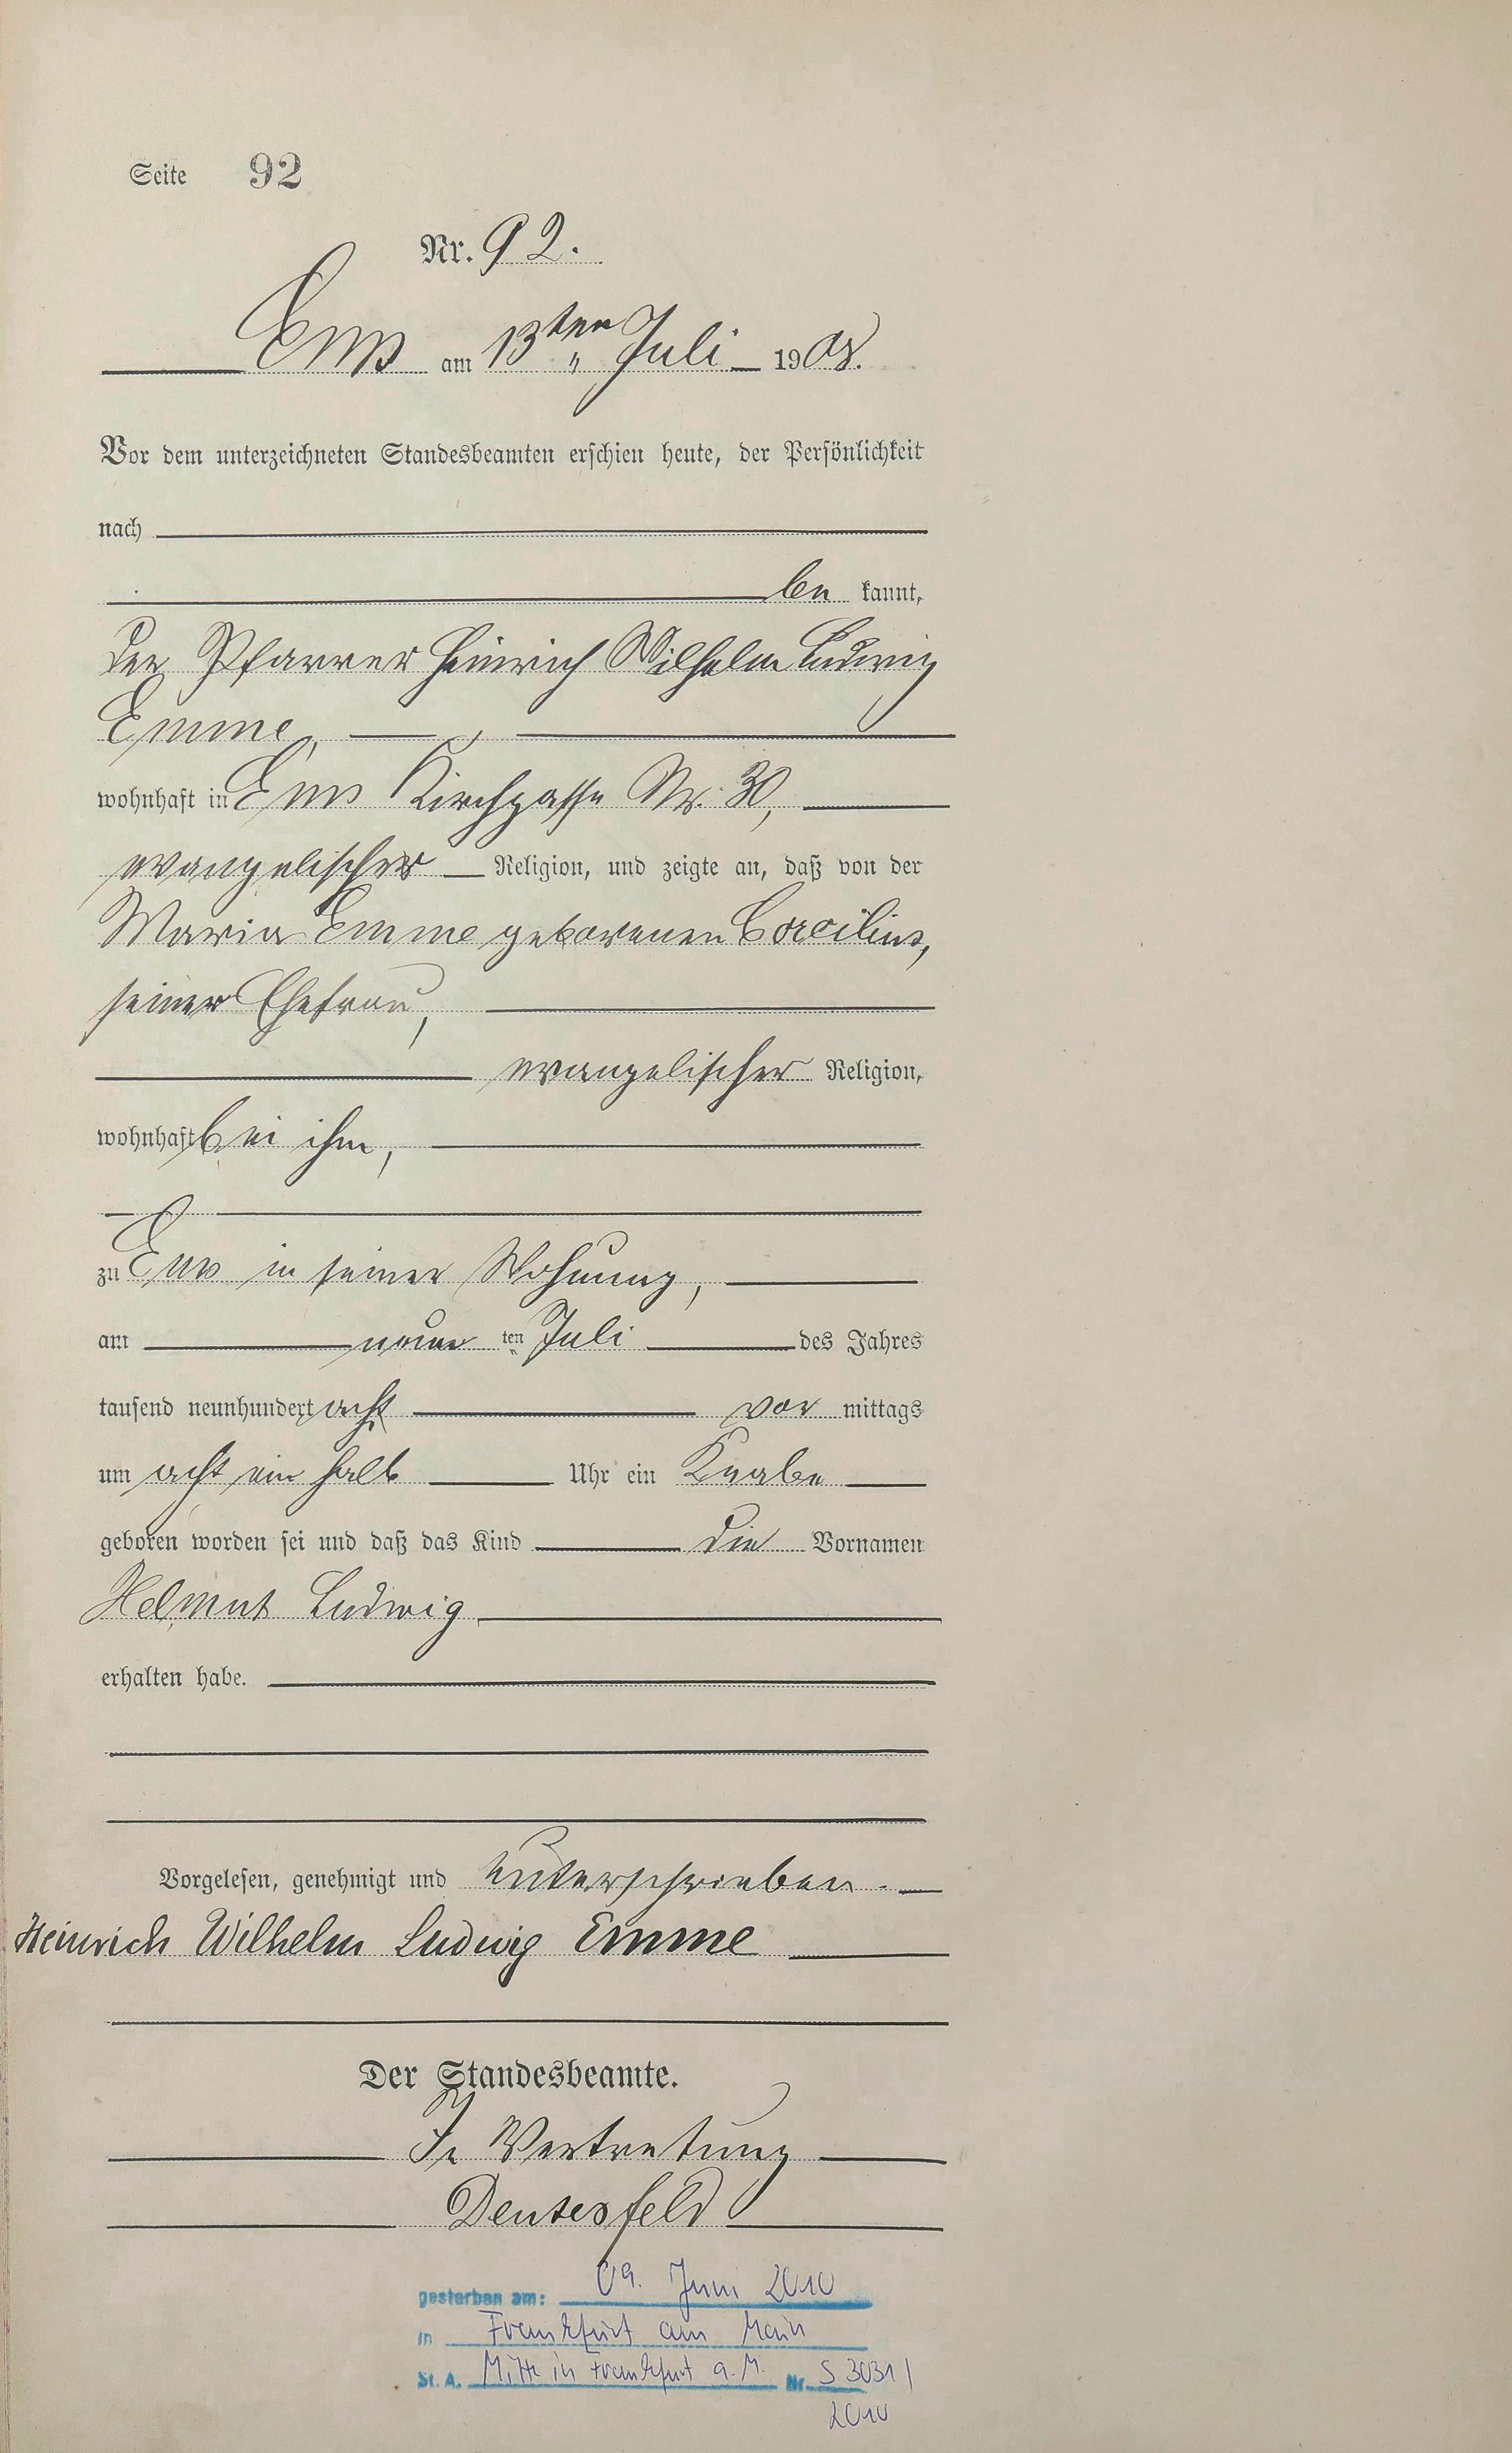 Seite 92
Nr. 92.
Ems am 13ten Juli 1908.
Vor dem unterzeichneten Standesbeamten erschien heute, der Persönlichkeit
nach
be kannt,
der Pfarrer Heinrich Wilhelm Ludwig
Emme,
wohnhaft in Ems Kirchgasse Nr. 30,
evangelischer Religion, und zeigte an, daß von der
Maria Emme geborenen Corcilius,
seiner Ehefrau,
evangelischer Religion,
wohnhaft bei ihm,
zu Ems in seiner Wohnung,
am neun ten Juli des Jahres
tausend neunhundert acht vor mittags
um acht ein halb Uhr ein Knabe
geboren worden sei und daß das Kind die Vornamen
Helmut Ludwig
erhalten habe.
Vorgelesen, genehmigt und unterschrieben.
Heinrich Wilhelm Ludwig Emme
Der Standesbeamte.
In Vertretung
Deutesfeld
gestorben am: 09. Juni 2010
in Frankfurt am Main
St. A. Mitte in Frankfurt a. M. Nr. S 3031/
2010